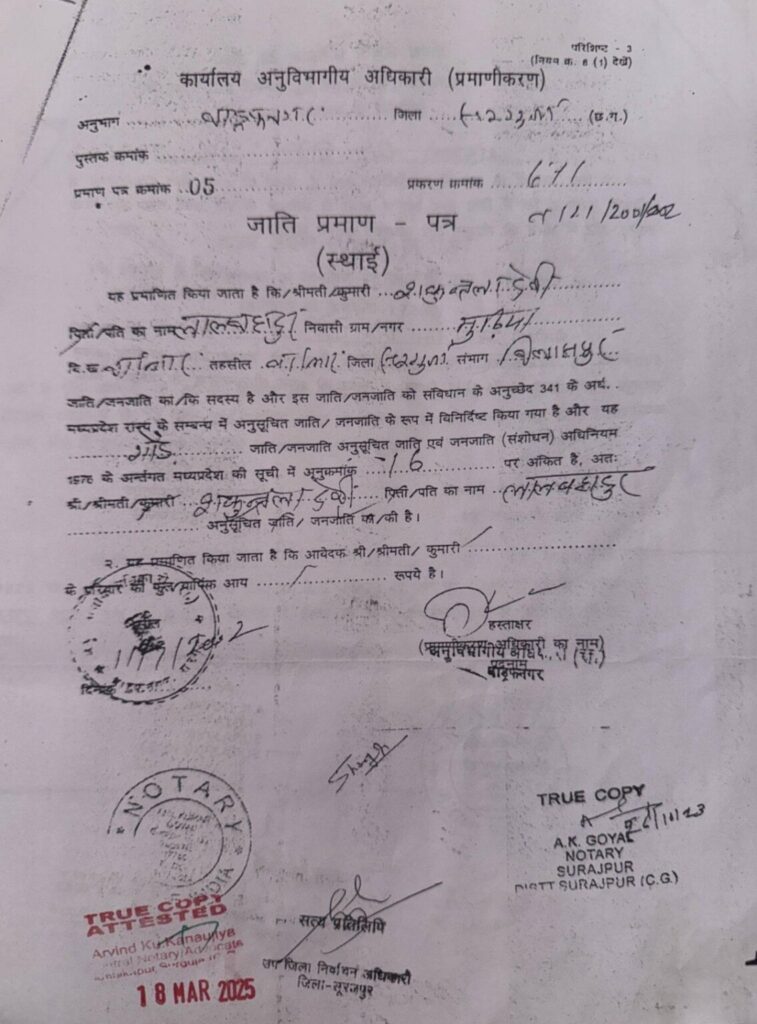 परिशिष्ट - 3
(नियम क्र. 6 (1) देखें)
कार्यालय अनुविभागीय अधिकारी (प्रमाणीकरण)
अनुभाग वाड्रफनगर जिला सरगुजा (छ.ग.)
पुस्तक क्रमांक
प्रमाण पत्र क्रमांक 05 प्रकरण क्रमांक 671
121/2001/2002
जाति प्रमाण - पत्र
(स्थाई)
यह प्रमाणित किया जाता है कि/श्रीमती/कुमारी शकुन्तला देवी
पिता/पति का नाम लालबहादुर निवासी ग्राम/नगर
तहसील जिला सरगुजा संभाग बिलासपुर
जाति/जनजाति का/कि सदस्य है और इस जाति/जनजाति को संविधान के अनुच्छेद 341 के अधि.
मध्यप्रदेश राज्य के सम्बन्ध में अनुसूचित जाति/ जनजाति के रूप में विनिर्दिष्ट किया गया है और यह
गोंड जाति/जनजाति अनुसूचित जाति एवं जनजाति (संशोधन) अधिनियम
1976 के अर्न्तगत मध्यप्रदेश की सूची में अनुक्रमांक 16 पर अंकित है, अतः
श्री/श्रीमती/कुमारी शकुन्तला देवी पिता/पति का नाम लालबहादुर
अनुसूचित जाति/ जनजाति का/की है।
२. यह प्रमाणित किया जाता है कि आवेदक श्री/श्रीमती/ कुमारी
के परिवार की कुल वार्षिक आय रूपये है।
हस्ताक्षर
अधिकारी का नाम)
अनुविभागीय
पदनाम
वाड्रफनगर
दिनांक
NOTARY
INDIA
TRUE COPY
26/11/23
A.K. GOYAL
NOTARY
SURAJPUR
DISTT SURAJPUR (C.G.)
TRUE COPY
ATTESTED
Arvind Ku.Kanaujiya
Notary/Advocate
18 MAR 2025
सत्य प्रतिलिपि
उप जिला निर्वाचन अधिकारी
जिला-सूरजपुर